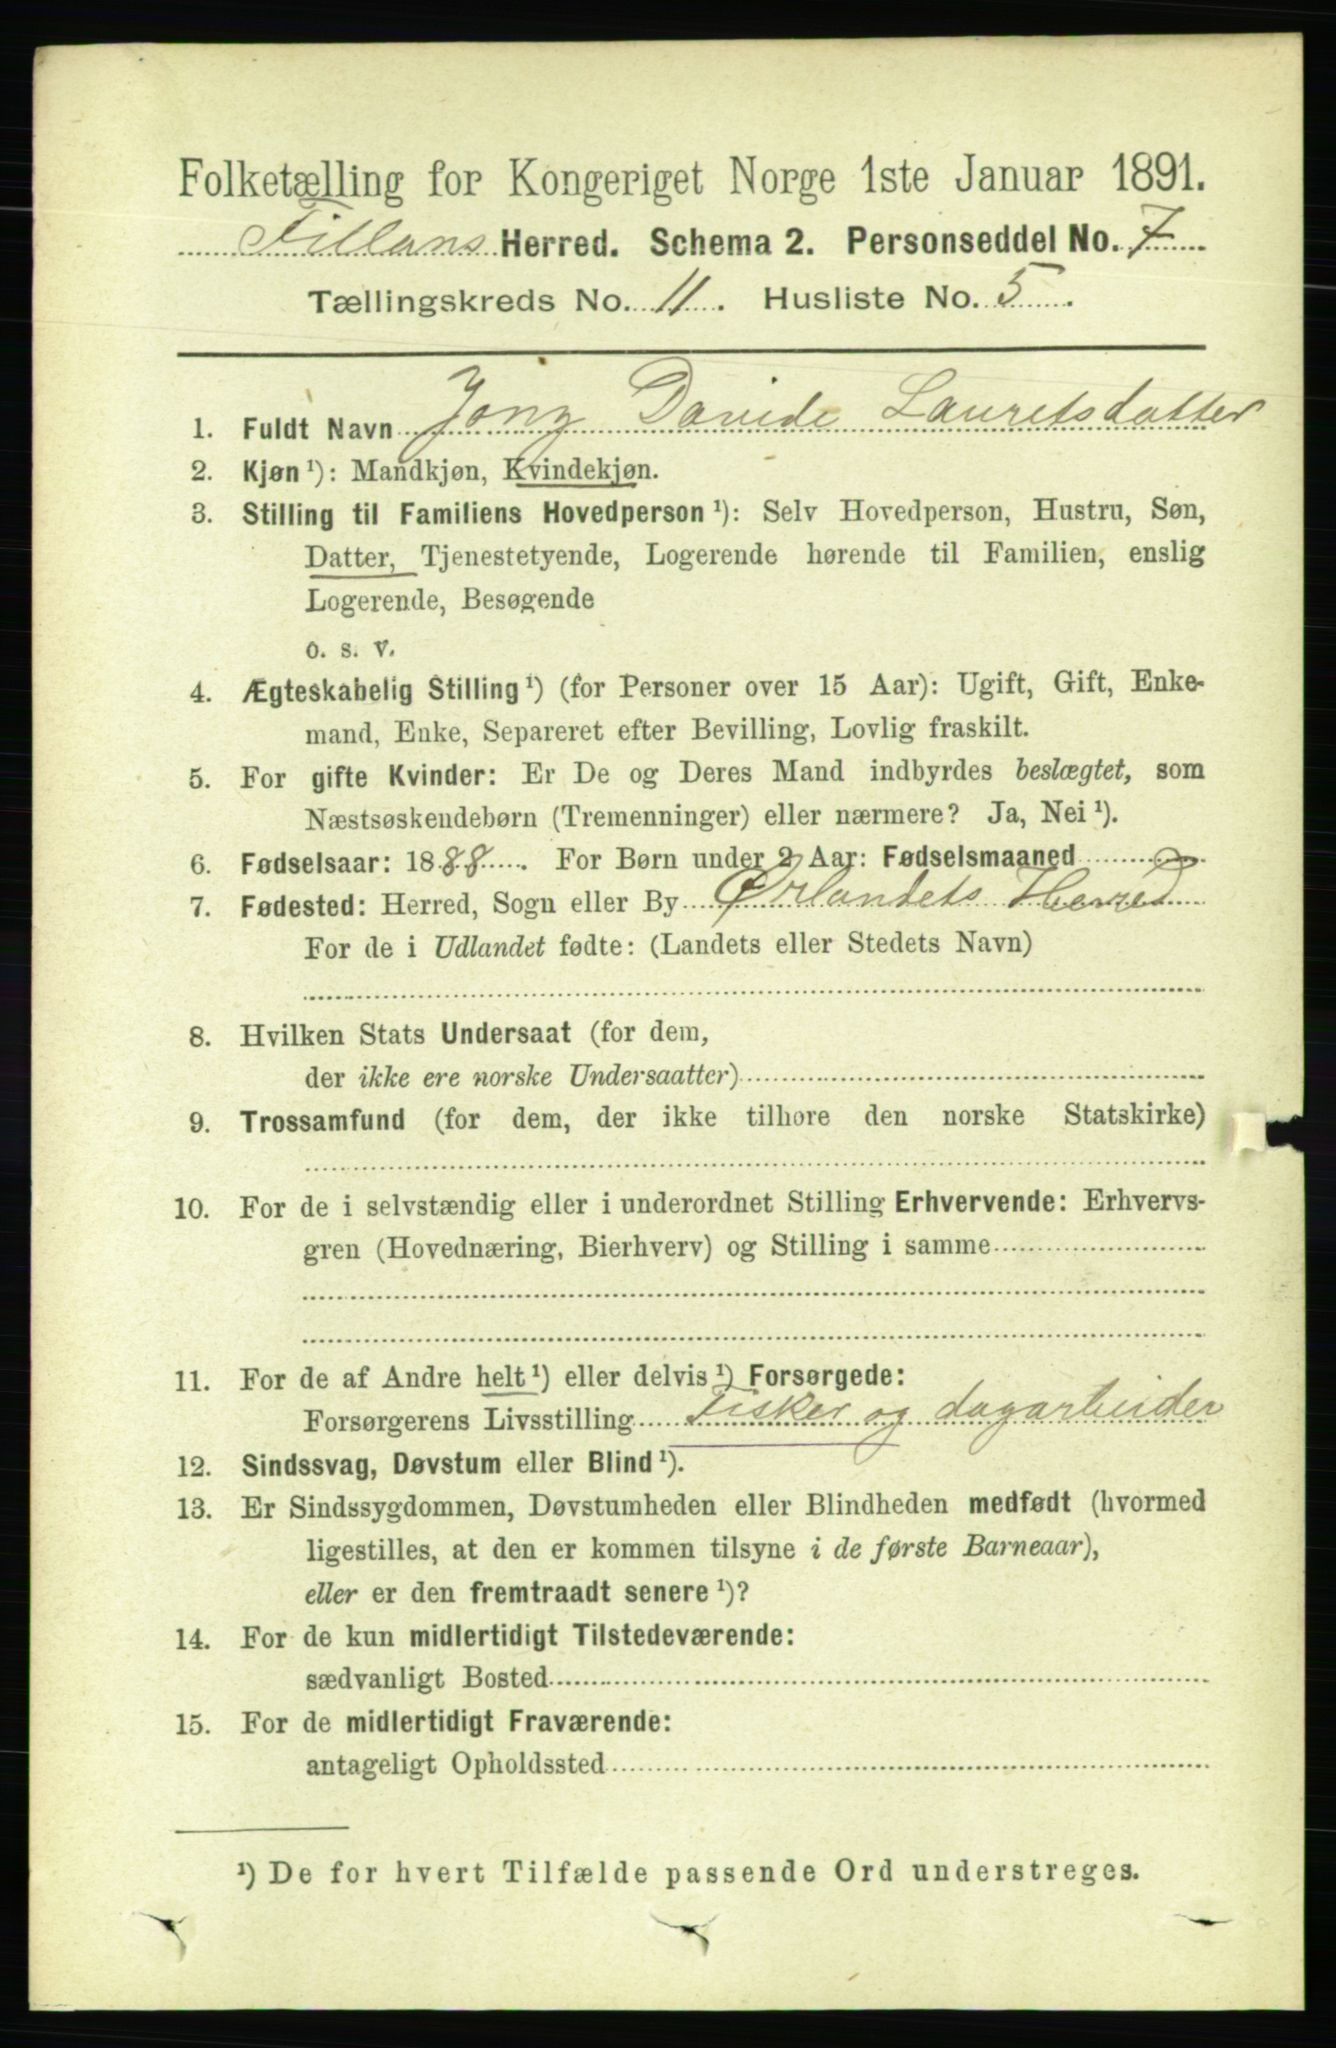 Folketælling for Kongeriget Norge 1ste Januar 1891.
Fillans Herred. Schema 2. Personseddel No. 7
Tællingskreds No. 11. Husliste No. 5.
1. Fuldt Navn Davide Lauretsdatter
2. Kjøn ¹): Mandkjøn, Kvindekjøn.
3. Stilling til Familiens Hovedperson ¹): Selv Hovedperson, Hustru, Søn,
Datter, Tjenestetyende, Logerende hørende til Familien, enslig
Logerende, Besøgende
o. s. v.
4. Ægteskabelig Stilling ¹) (for Personer over 15 Aar): Ugift, Gift, Enke-
mand, Enke, Separeret efter Bevilling, Lovlig fraskilt.
5. For gifte Kvinder: Er De og Deres Mand indbyrdes beslægtet, som
Næstsøskendebørn (Tremenninger) eller nærmere? Ja, Nei ¹).
6. Fødselsaar: 1888. For Børn under 2 Aar: Fødselsmaaned
7. Fødested: Herred, Sogn eller By Ørlandets Herred
For de i Udlandet fødte: (Landets eller Stedets Navn)
8. Hvilken Stats Undersaat (for dem,
der ikke ere norske Undersaatter)
9. Trossamfund (for dem, der ikke tilhøre den norske Statskirke)
10. For de i selvstændig eller i underordnet Stilling Erhvervende: Erhvervs-
gren (Hovednæring, Bierhverv) og Stilling i samme
11. For de af Andre helt ¹) eller delvis ¹) Forsørgede:
Forsørgerens Livsstilling Fisker og dagarbeider
12. Sindssvag, Døvstum eller Blind ¹).
13. Er Sindssygdommen, Døvstumheden eller Blindheden medfødt (hvormed
ligestilles, at den er kommen tilsyne i de første Barneaar),
eller er den fremtraadt senere ¹)?
14. For de kun midlertidigt Tilstedeværende:
sædvanligt Bosted
15. For de midlertidigt Fraværende:
antageligt Opholdssted
¹) De for hvert Tilfælde passende Ord understreges.